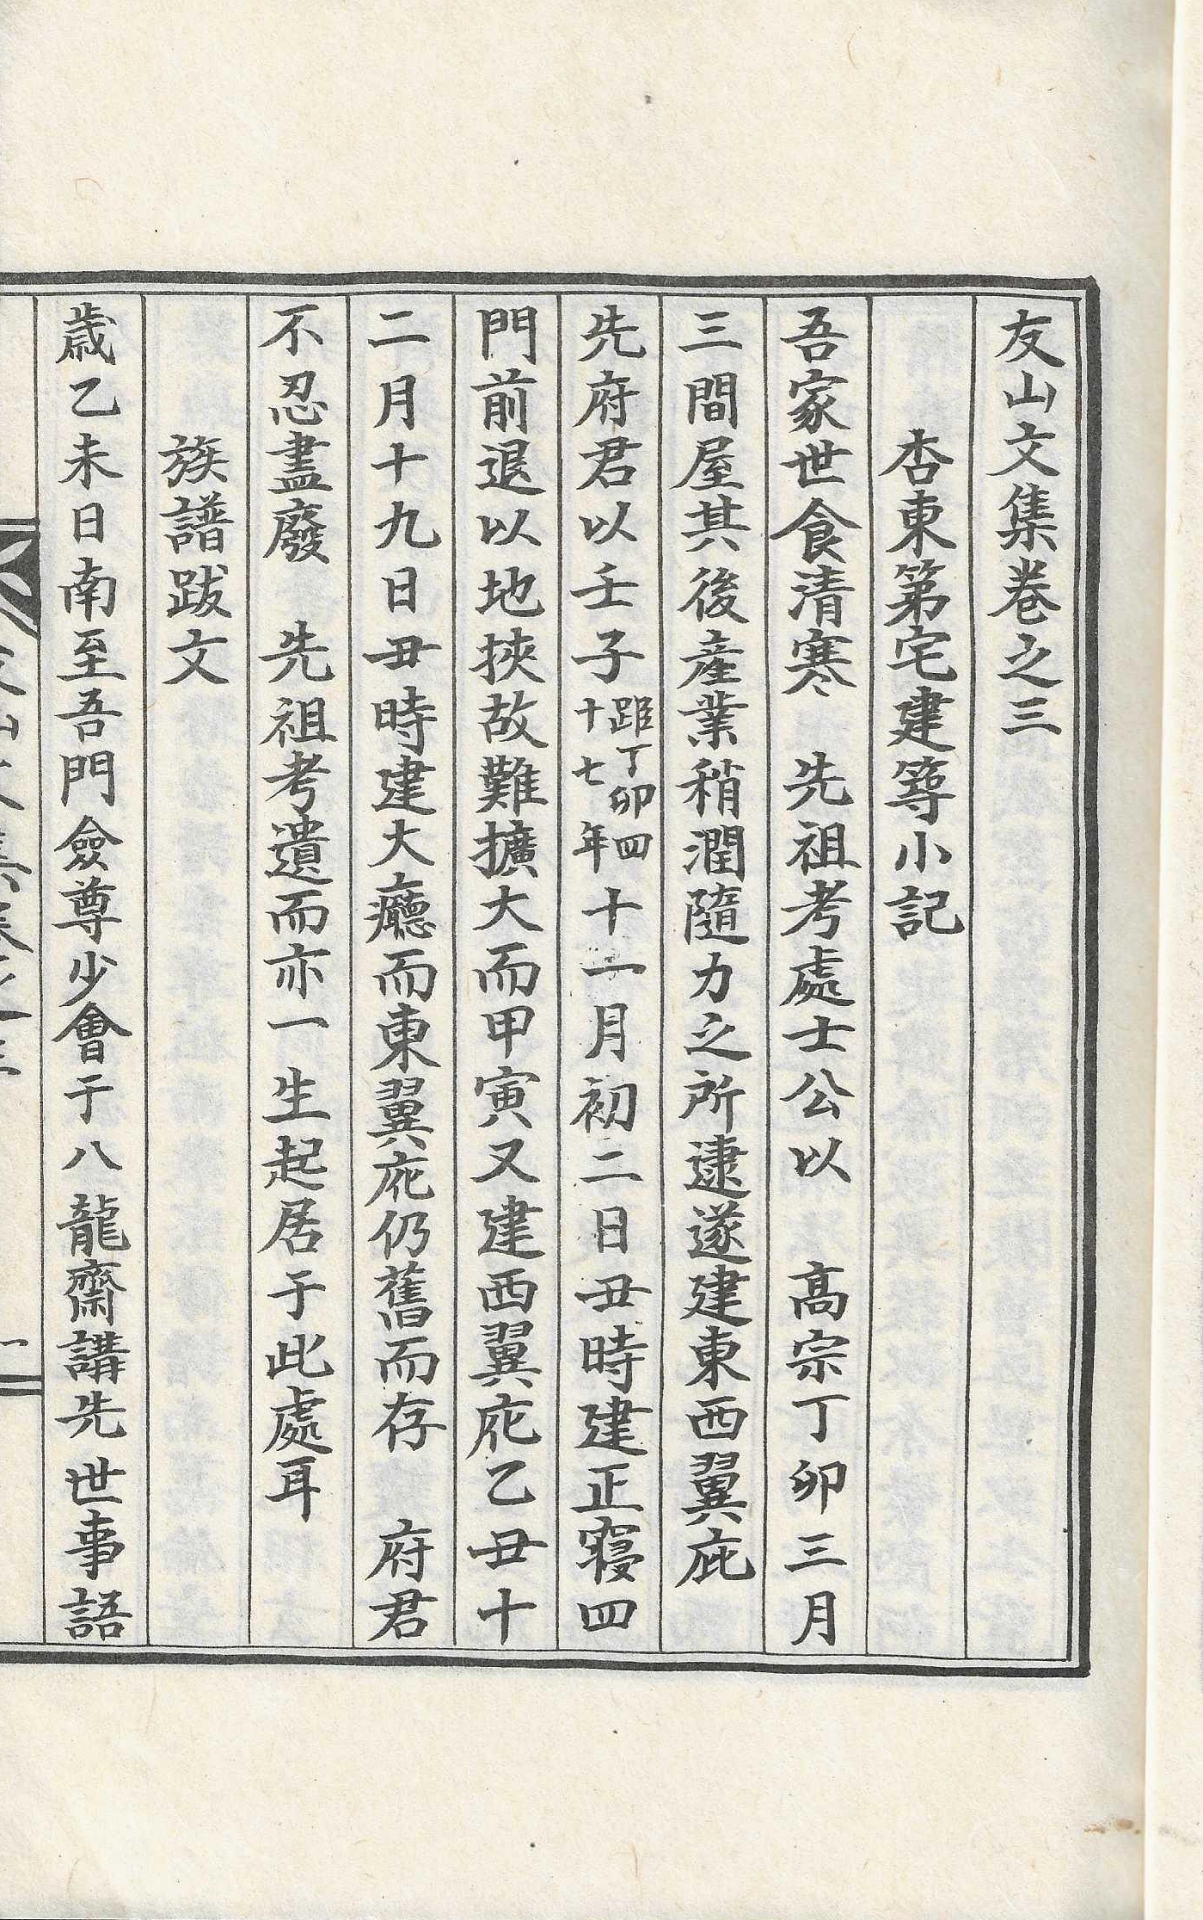 友山文集卷之三
杏東第宅建築小記
吾家世食清寒　先祖考處士公以　高宗丁卯三月
三間屋其後產業稍潤隨力之所逮遂建東西翼庇
先府君以壬子距丁卯四十七年十一月初二日丑時建正寢四
門前退以地挾故難擴大而甲寅又建西翼庇乙丑十
二月十九日丑時建大廳而東翼庇仍舊而存　府君
不忍盡廢　先祖考遺而亦一生起居于此處耳
族譜跋文
歲乙未日南至吾門僉尊少會于八龍齋講先世事語